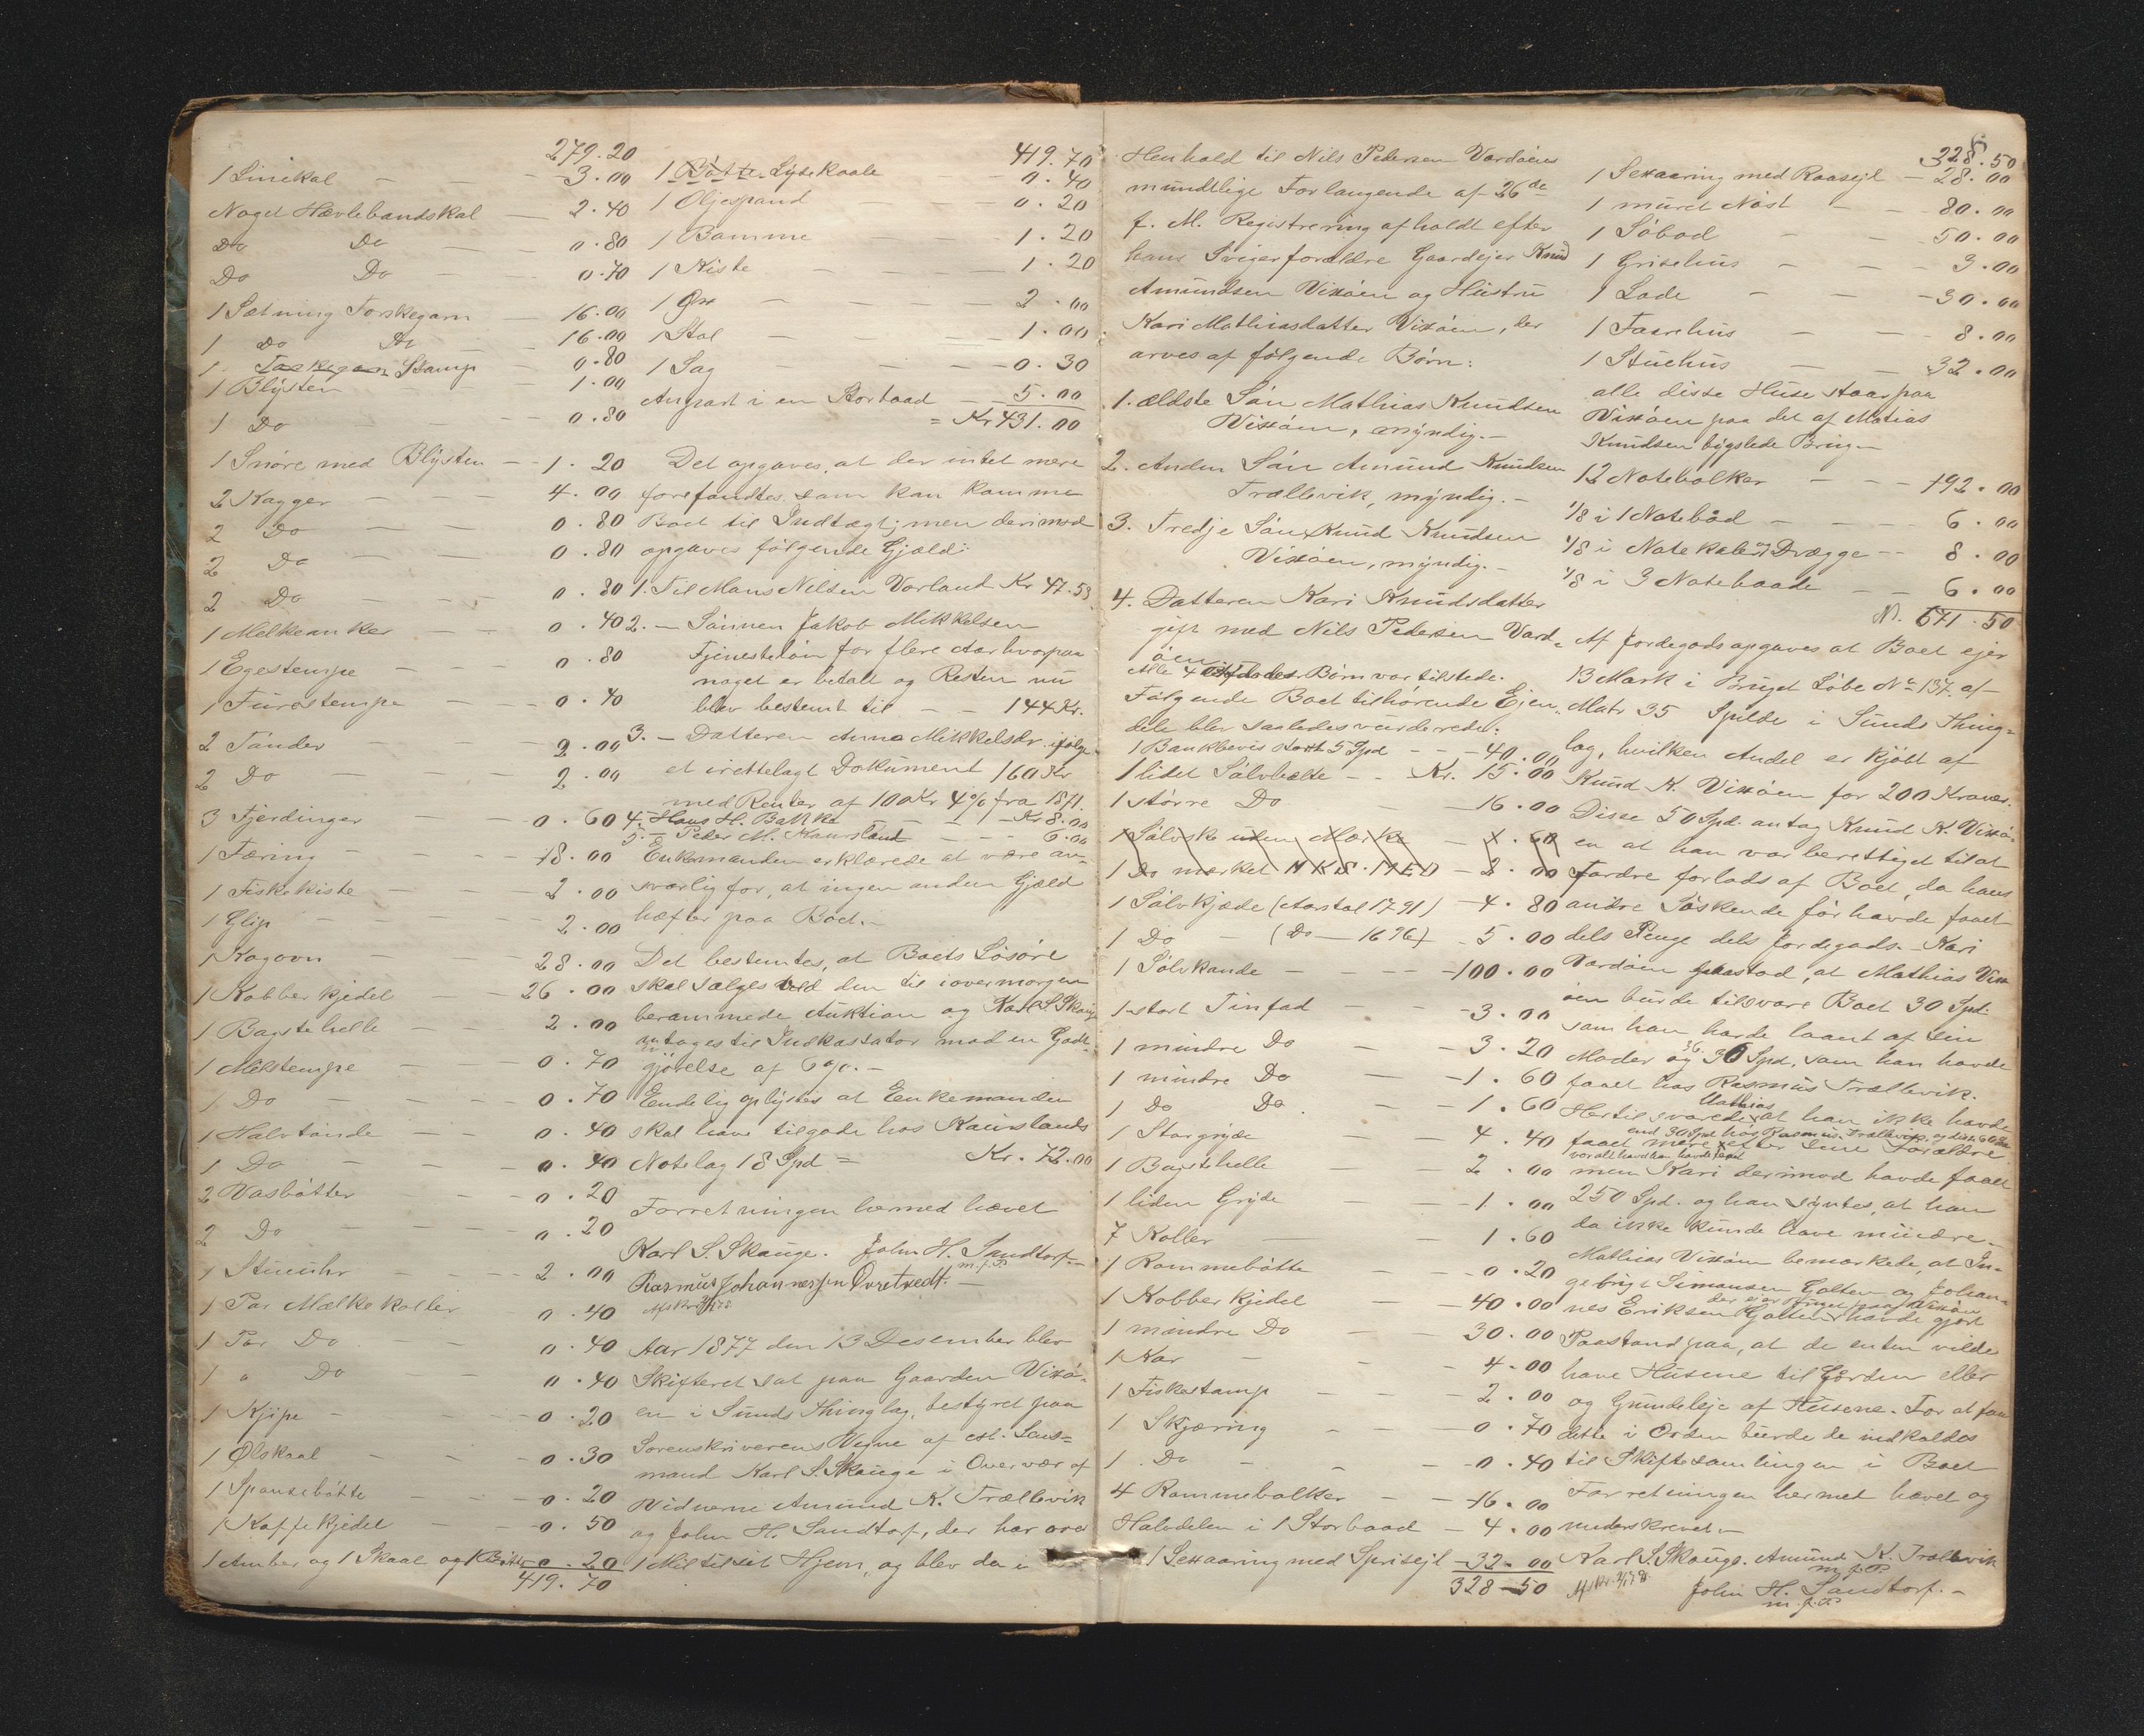 279.20
1 Linekal - - - 3.00
Noget Hævlebandskal - 2.40
Do Do - 0.80
Do Do - 0.70
1 Sætning Torskegarn - 16.00
1 Do Do - 16.00
1 Torskegarn Stamp - 0.80
1 Blysten - 1.00
1 Do - 0.80
1 Snøre med Blysten - 1.20
2 Kagger - - - 4.00
2 Do - - - 0.80
2 Do - - - 0.80
2 Do - - - 0.80
1 Melkeanker - - 0.40
1 Egestempe - - 0.80
1 Furustempe - - 0.40
2 Tønder - - - 2.00
2 Do - - - 2.00
3 Fjerdinger - - 0.60
1 Færing - - - 18.00
1 Fiskekiste - - - 2.00
1 Glip - - - 2.00
1 Kogovn - - - 28.00
1 Kobberkjedel - - 26.00
1 Bagstehelle - - 2.00
1 Melstempe - - - 0.70
1 Do - - - 0.70
1 Halvtønde - - 0.40
1 Do - - - 0.40
2 Vasbøtter - - - 0.20
2 Do - - - 0.20
1 Stueuhr - - - 2.00
1 Par Mælkekoller - 0.40
1 Par Do - - 0.40
1 " Do - - 0.40
1 Kjipe - - - 0.20
1 Ølskaal - - - 0.30
1 Spansebøtte - - 0.20
1 Kaffekjedel - - 0.50
1 Amber og 1 Skaal og 1 Bøtte 0.20
419.70
419.70
1 Bøtte Lysekaale - 0.40
1 Oljespand - - 0.20
1 Bomme - - 1.20
1 Kiste - - - 1.20
1 Øx - - - 2.00
1 Stol - - - 1.00
1 Sag - - - 0.30
Anpart i en Storbaad - 5.00
= Kr 431.00
Det opgaves, at der intet mere
forefandtes som kan komme
Boet til Indtægt; men derimod
opgaves følgende Gjæld:
1. Til Mons Nilsen Vorland Kr 47.53
2. - Sønnen Jakob Mikkelsen
Tjenesteløn for flere Aar hvorpaa
noget er betalt og Resten nu
blev bestemt til - - 144 Kr.
3. - Datteren Anna Mikkelsdr. ifølge
et irettelagt Dokument 160 Kr
med Renter af 100 Kr 4% fra 18/11.
4. Hans H. Bakke - - - Kr 8.00
5. - Peder M. Kaursland - - 6.00
Enkemanden erklærede at være an-
svarlig for, at ingen anden Gjæld
hæfter paa Boet. -
Det bestemtes, at Boets Løsøre
skal sælges ved den til iovermorgen
berammede Auktion og Karl S. Skauge
antages til Inkassator mod en Godt-
gjørelse af 6%. -
Endelig oplystes at Enkemanden
skal have tilgode hos Kaurslands
Notelag 18 Spd = Kr. 72.00
Forretningen hermed hævet
Karl S. Skauge. John H. Sandtorf. -
m.f.P.
Rasmus Johannessen Ovretvedt. -
Aar 1877 den 13 Desember blev
Skifteret sat paa Gaarden Vixø-
en i Sunds Thinglag, bestyret paa
Sorenskriverens Vegne af cst. Lens-
mand Karl S. Skauge i Overvær af
Vidnerne Amund K. Trællevik
og John H. Sandtorf, der har over
1 Mil til sit Hjem, og blev da i
Henhold til Nils Pedersen Vardøens
mundtlige Forlangende af 26de
f. M. Registrering afholdt efter
hans Svigerforældre Gaardejer Knud
Amundsen Vixøen og Hustru
Kari Mathiasdatter Vixøen, der
arves af følgende Børn:
1. ældste Søn Mathias Knudsen
Vixøen, myndig. -
2. Anden Søn Amund Knudsen
Trællevik, myndig. -
3. Tredje Søn Knud Knudsen
Vixøen, myndig. -
4. Datteren Kari Knudsdatter
gift med Nils Pedersen Vard-
øen
Alle 4 Børn var tilstede.
Følgende Boet tilhørende Ejen-
dele blev saaledes vurderede:
1 Bankbevis stort 5 Spd - - 40.00
1 lidet Sølvbælte - - Kr. 15.00
1 større Do - 16.00
1 Sølvske uden Mærke - 1.60
1 Do mærket NKS.IMED - 2.00
1 Sølvkjæde (Aarstal 1791) - 4.80
1 Do - (Do - 1696) - 5.00
1 Sølvkande - - - 100.00
1 stort Tinfad - - 3.00
1 mindre Do - - 3.20
1 mindre Do - - 1.60
1 Do Do - - 1.60
1 Storgryde - - 4.40
1 Bagstehelle - - 2.00
1 liden Gryde - - 1.00
7 Koller - - 1.60
1 Rommebøtte - - 0.20
1 Kobberkjedel - - 40.00
1 mindre Do - - 30.00
1 Kar - - - 4.00
1 Fiskestamp - - - 2.00
1 Skjæring - - - 0.70
1 Do - - - 0.40
4 Rommebolker - - 16.00
Halvdelen i 1 Storbaad - 4.00
1 Sexaaring med Sprisejl - 32.00
328-50
328.50
1 Sexaaring med Raasejl - 28.00
1 muret Nøst - - 80.00
1 Søbod - - 50.00
1 Grisehus - - - 3.00
1 Lade - - - 30.00
1 Faarehus - - 8.00
1 Stuehus - - 32.00
alle disse Huse staar paa
Vixøen paa det af Matias
Knudsen bygslede Brug -
12 Notebolker - - - 192.00
1/8 i 1 Notebåd - - - 6.00
1/8 i Notekabel og Drægge - - 8.00
1/8 i 3 Notebaade - - 6.00
671.50
Af Jordegods opgaves at Boet ejer
13 Mark i Bruget Løbe No 137 af
Matr 35 Spilde i Sunds Thing-
lag, hvilken Andel er kjøbt af
Knud K. Vixøen for 200 Kroner.
Disse 50 Spd. antog Knud K. Vixø-
en at han var berettiget til at
fordre forlods af Boet, da hans
andre Søskende før havde faaet
dels Penge dels Jordegods. - Kari
Vardøen paastod, at Mathias Vix-
øen burde tilsvare Boet 30 Spd.
som han havde laant af sin
Moder og 36 Spd. som han havde
faaet hos Rasmus Trællevik.
Mathias
Hertil svarede at han ikke havde
end 30 Spd hos Rasmus Trællevik og disse 60
faaet mere efter sine Forældre
var alt hvad han havde faaet
men Kari derimod havde faaet
250 Spd. og han syntes, at han
da ikke kunde have mindre. -
Mathias Vixøen bemærkede, at In-
gebrigt Simonsen Golten og Johan-
der ejer Bruget paa Vixøen
nes Eriksen Golten havde gjort
Paastand paa, at de enten vilde
have Husene til Jorden eller
og Grundleje af Husene. For at faa
dette i Orden burde de indkaldes
til Skiftesamlingen i Boet
Forretningen hermet hævet og
underskrevet. -
Karl S. Skauge. Amund K. Trællevik
m.f.P.
John H. Sandtorf. -
m.f.P.